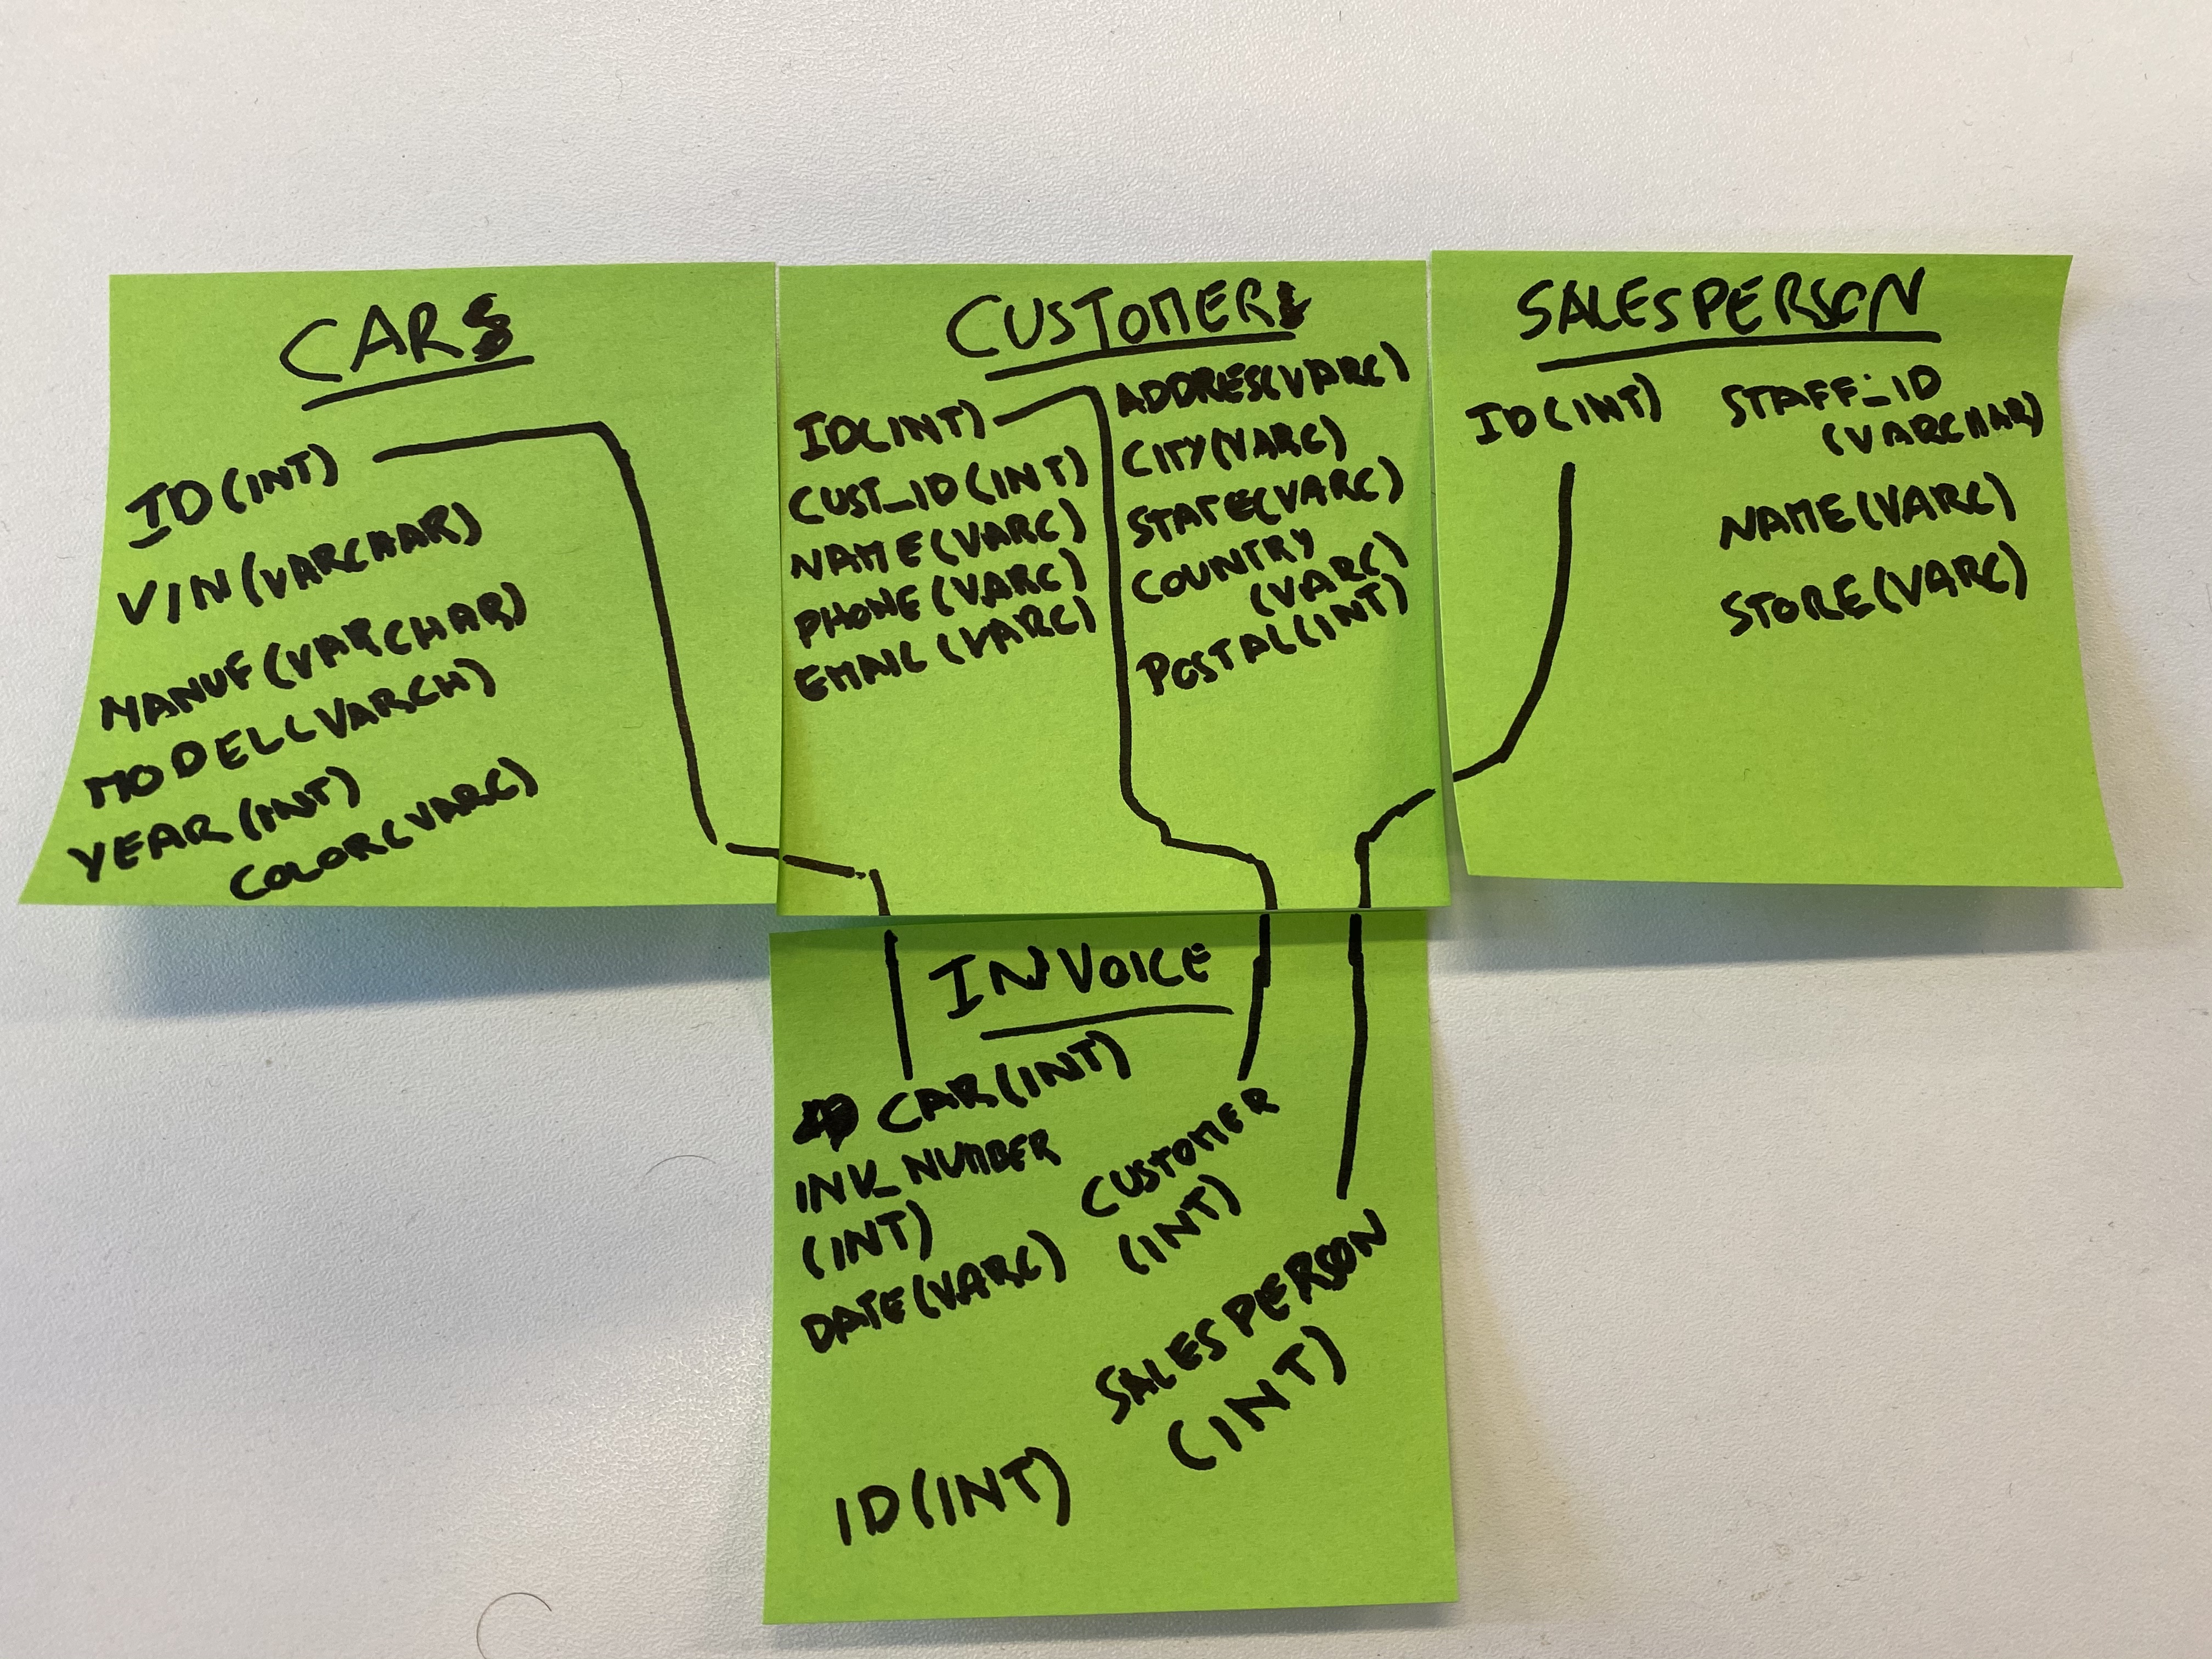 CARS
ID(INT)
VIN(VARCHAR)
MANUF(VARCHAR)
MODEL(VARCH)
YEAR(INT)
COLOR(VARC)
CUSTOMER
ID(INT)
CUST_ID(INT)
NAME(VARC)
PHONE(VARC)
EMAIL(VARC)
ADDRES(VARC)
CITY(VARC)
STATE(VARC)
COUNTRY
(VARC)
POSTAL(INT)
SALESPERSON
ID(INT)
STAFF_ID
(VARCHAR)
NAME(VARC)
STORE(VARC)
INVOICE
CAR(INT)
INV_NUMBER
(INT)
DATE(VARC)
CUSTOMER
(INT)
SALESPERSON
(INT)
ID(INT)